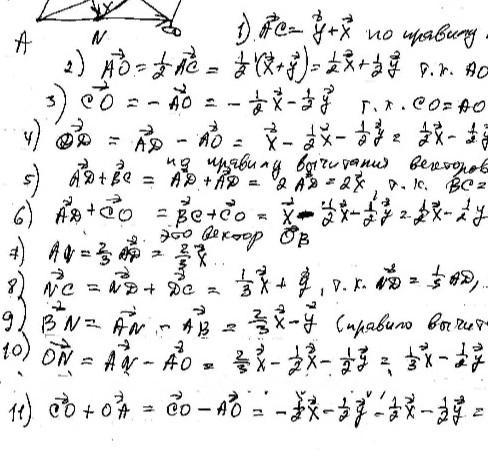 A N D
1) AC⃗ = y⃗ + x⃗ по правилу
2) AO⃗ = 1/2 AC⃗ = 1/2 (x⃗ + y⃗) = 1/2 x⃗ + 1/2 y⃗ т.к. AO
3) CO⃗ = - AO⃗ = - 1/2 x⃗ - 1/2 y⃗ т.к. CO = AO
4) OD⃗ = AD⃗ - AO⃗ = x⃗ - 1/2 x⃗ - 1/2 y⃗ = 1/2 x⃗ - 1/2 y⃗
по правилу вычитания векторов
5) AD⃗ + BC⃗ = AD⃗ + AD⃗ = 2 AD⃗ = 2x⃗, т.к. BC =
6) AD⃗ + CO⃗ = BC⃗ + CO⃗ = x⃗ - 1/2 x⃗ - 1/2 y⃗ = 1/2 x⃗ - 1/2 y⃗
это вектор OB⃗
7) AN⃗ = 2/3 AD⃗ = 2/3 x⃗
8) NC⃗ = ND⃗ + DC⃗ = 1/3 x⃗ + y⃗, т.к. ND⃗ = 1/3 AD,
9) BN⃗ = AN⃗ - AB⃗ = 2/3 x⃗ - y⃗ (правило вычит
10) ON⃗ = AN⃗ - AO⃗ = 2/3 x⃗ - 1/2 x⃗ - 1/2 y⃗ = 1/3 x⃗ - 1/2 y⃗
11) CO⃗ + OA⃗ = CO⃗ - AO⃗ = - 1/2 x⃗ - 1/2 y⃗ - 1/2 x⃗ - 1/2 y⃗ =